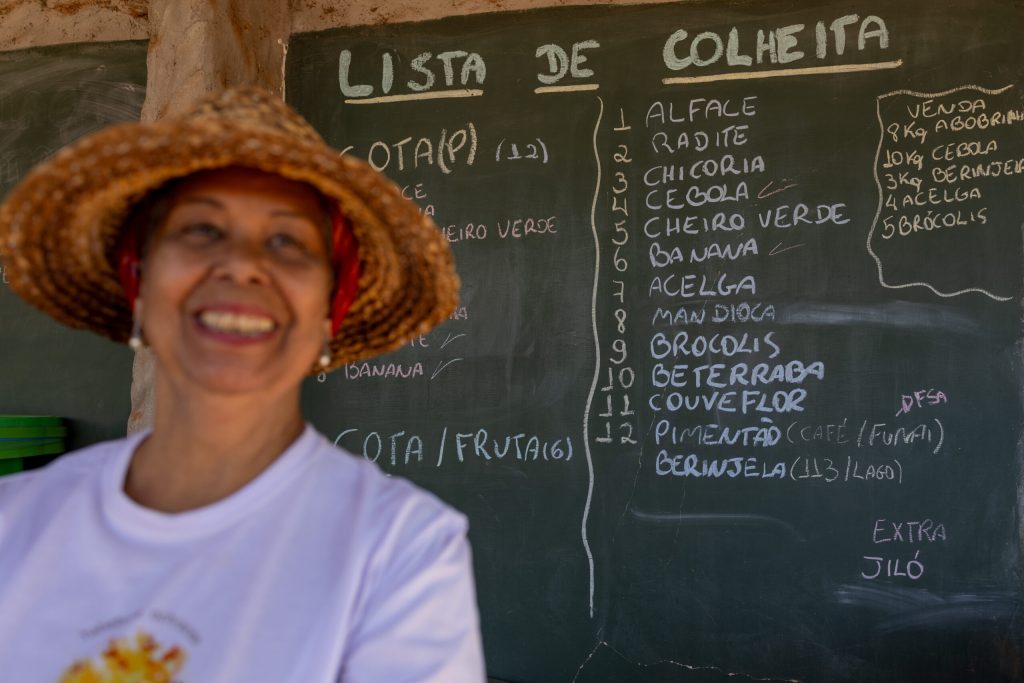 LISTA DE COLHEITA
COTA(P) (12)
CHEIRO VERDE
BANANA
COTA / FRUTA(6)
1 ALFACE
2 RADITE
3 CHICORIA
4 CEBOLA
5 CHEIRO VERDE
6 BANANA
7 ACELGA
8 MANDIOCA
9 BROCOLIS
10 BETERRABA
11 COUVEFLOR
12 PIMENTÃO (CAFÉ / FUNAI)
DFSA
BERINJELA (113/LAGO)
VENDA
8Kg ABOBRINHA
10Kg CEBOLA
3Kg BERINJELA
4 ACELGA
5 BRÓCOLIS
EXTRA
JILÓ